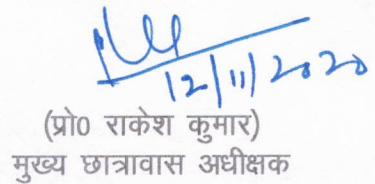 12/11/2020
(प्रो0 राकेश कुमार)
मुख्य छात्रावास अधीक्षक